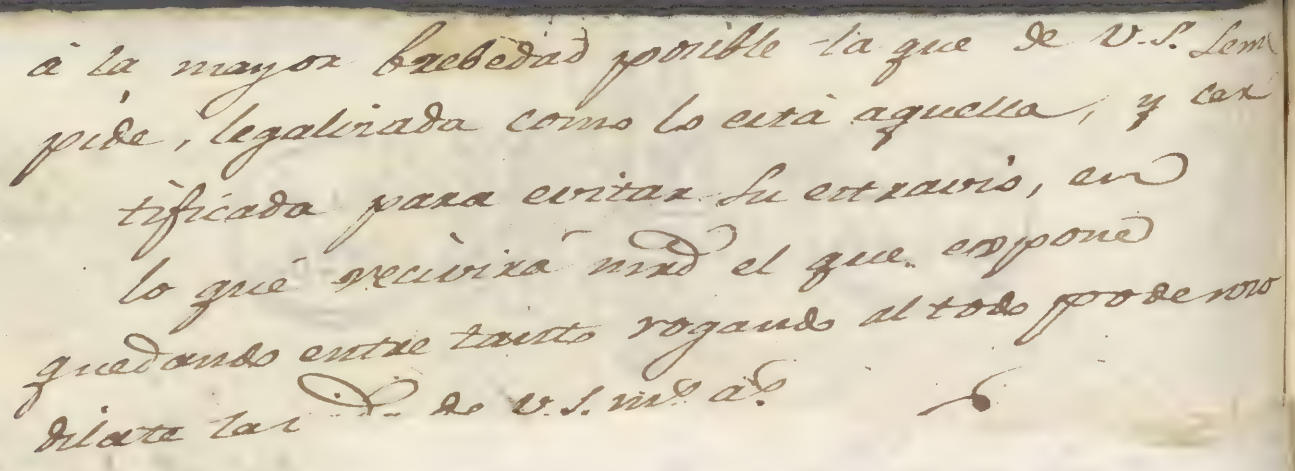 à la mayor brebedad posible la que de V.S. Sem
pide, legalisada como lo está aquella, y cer
tificada para evitar su extravio, en
lo que recivirá mrd el que expone
quedando entre tanto rogando al todo poderoso
dilate las de V.S. ms. as.